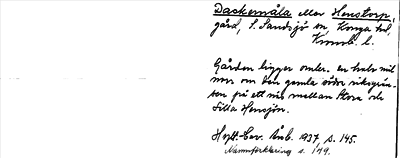 Dackemåla eller Henstorp,
gård, S. Sandsjö sn, Konga hd,
Kronob. l.
Gården ligger omkr. en halv mil
norr om den gamla södra riksgrän-
sen på ett näs mellan Stora och
Lilla Hensjön.
Hylt-Cav. Årsb. 1937 s. 145.
Namnförklaring s. 149.